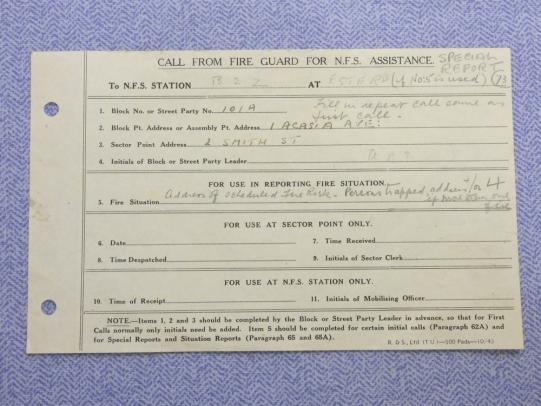 CALL FROM FIRE GUARD FOR N.F.S. ASSISTANCE. SPECIAL REPORT
To N.F.S. STATION B22 AT ESSE RD (if No: 5 is used) (73
1. Block No. or Street Party No. 101A Fill in repeat call same as
2. Block Pt. Address or Assembly Pt. Address 1 ACASIA AVE: first call.
3. Sector Point Address 2 SMITH ST
4. Initials of Block or Street Party Leader
FOR USE IN REPORTING FIRE SITUATION.
5. Fire Situation Address of scheduled Fire Risk. Persons trapped, address &/or 4
FOR USE AT SECTOR POINT ONLY.
6. Date 7. Time Received
8. Time Despatched 9. Initials of Sector Clerk
FOR USE AT N.F.S. STATION ONLY.
10. Time of Receipt 11. Initials of Mobilising Officer
NOTE.—Items 1, 2 and 3 should be completed by the Block or Street Party Leader in advance, so that for First
Calls normally only initials need be added. Item 5 should be completed for certain initial calls (Paragraph 62A) and
for Special Reports and Situation Reports (Paragraph 65 and 68A).
R. & S., Ltd (T.U.)—500 Pads—10/43